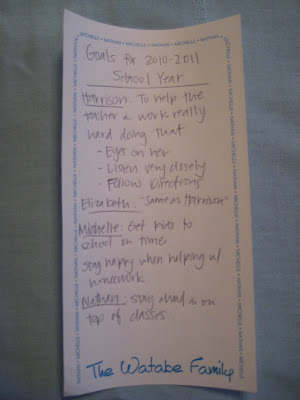 MICHELLE • NATHAN • MICHELLE • NATHAN • MICHELLE • NATHAN
Goals for 2010-2011
School Year
Harrison: To help the
teacher & work really
hard doing that
- Eyes on her
- Listen very closely
- Follow Directions
Elizabeth: "Same as Harrison"
Michelle: Get kids to
school on time
stay happy when helping w/
homework
Nathan: stay ahead & on
top of classes
The Watabe Family